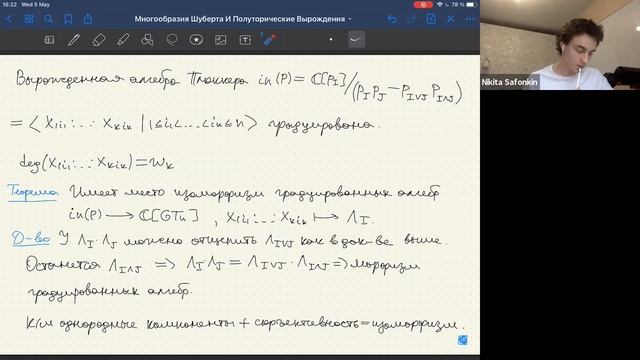 16:22 Wed 5 May
78 %
Многообразия Шуберта И Полуторические Вырождения
Nikita Safonkin
Вырожденная алгебра Плюккера in(P) = ℂ[P_I]/(P_I P_J − P_{I∨J} P_{I∧J})
= ⟨ X_{1i_1}·…·X_{ki_k} | 1≤i_1<…<i_k≤n ⟩ градуирована.
deg(X_{1i_1}·…·X_{ki_k}) = w_k
Теорема Имеет место изоморфизм градуированных алгебр
in(P) ⟶ ℂ[GT_n] , X_{1i_1}·…·X_{ki_k} ⟼ Λ_I.
Д-во У Λ_I·Λ_J можно отщепить Λ_{I∨J} как в док-ве выше.
Останется Λ_{I∧J} ⇒ Λ_I·Λ_J = Λ_{I∨J}·Λ_{I∧J} ⇒ морфизм
градуированных алгебр.
К/м однородные компоненты + сюръективность = изоморфизм.